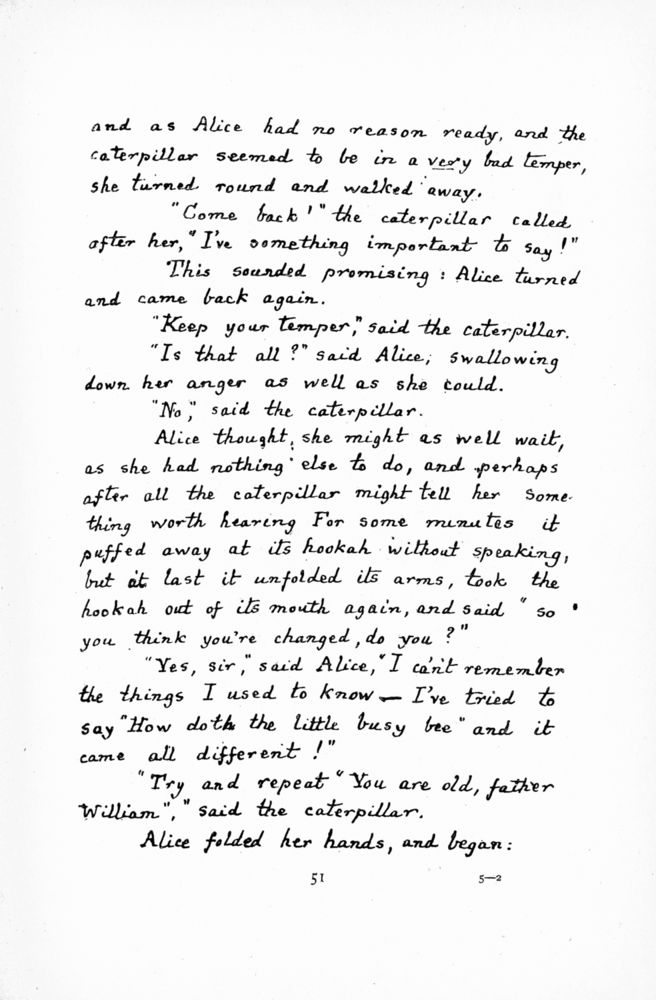 and as Alice had no reason ready, and the
caterpillar seemed to be in a very bad temper,
she turned round and walked away.
"Come back!" the caterpillar called
after her, "I've something important to say!"
This sounded promising: Alice turned
and came back again.
"Keep your temper," said the caterpillar.
"Is that all?" said Alice, swallowing
down her anger as well as she could.
"No," said the caterpillar.
Alice thought she might as well wait,
as she had nothing else to do, and perhaps
after all the caterpillar might tell her some-
thing worth hearing For some minutes it
puffed away at its hookah without speaking,
but at last it unfolded its arms, took the
hookah out of its mouth again, and said "so
you think you're changed, do you?"
"Yes, sir," said Alice, "I can't remember
the things I used to know — I've tried to
say "How doth the little busy bee" and it
came all different!"
"Try and repeat "You are old, father
William"," said the caterpillar.
Alice folded her hands, and began:
51
5—2